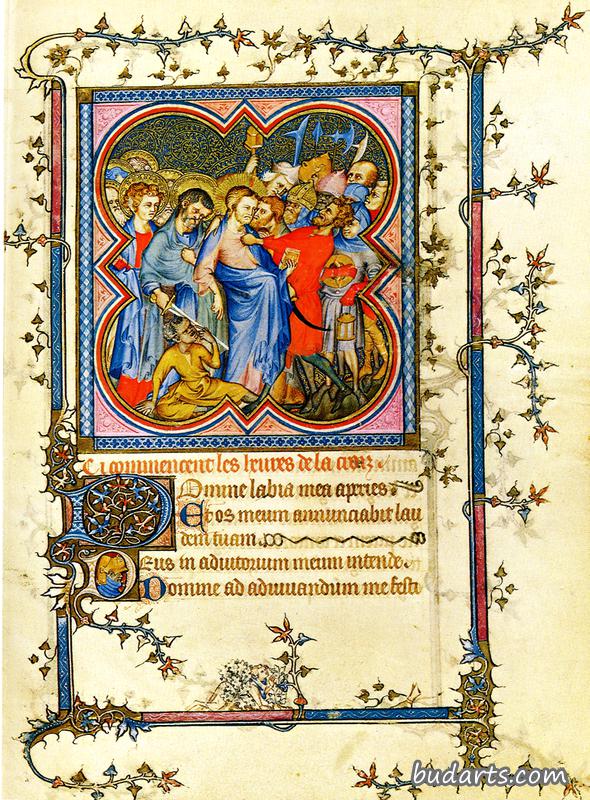 Ci commencent les heures de la croiz
Domine labia mea apries
Et os meum annunciabit lau
dem tuam
Deus in adiutorium meum intende
Domine ad adiuuandum me festi
budarts.com